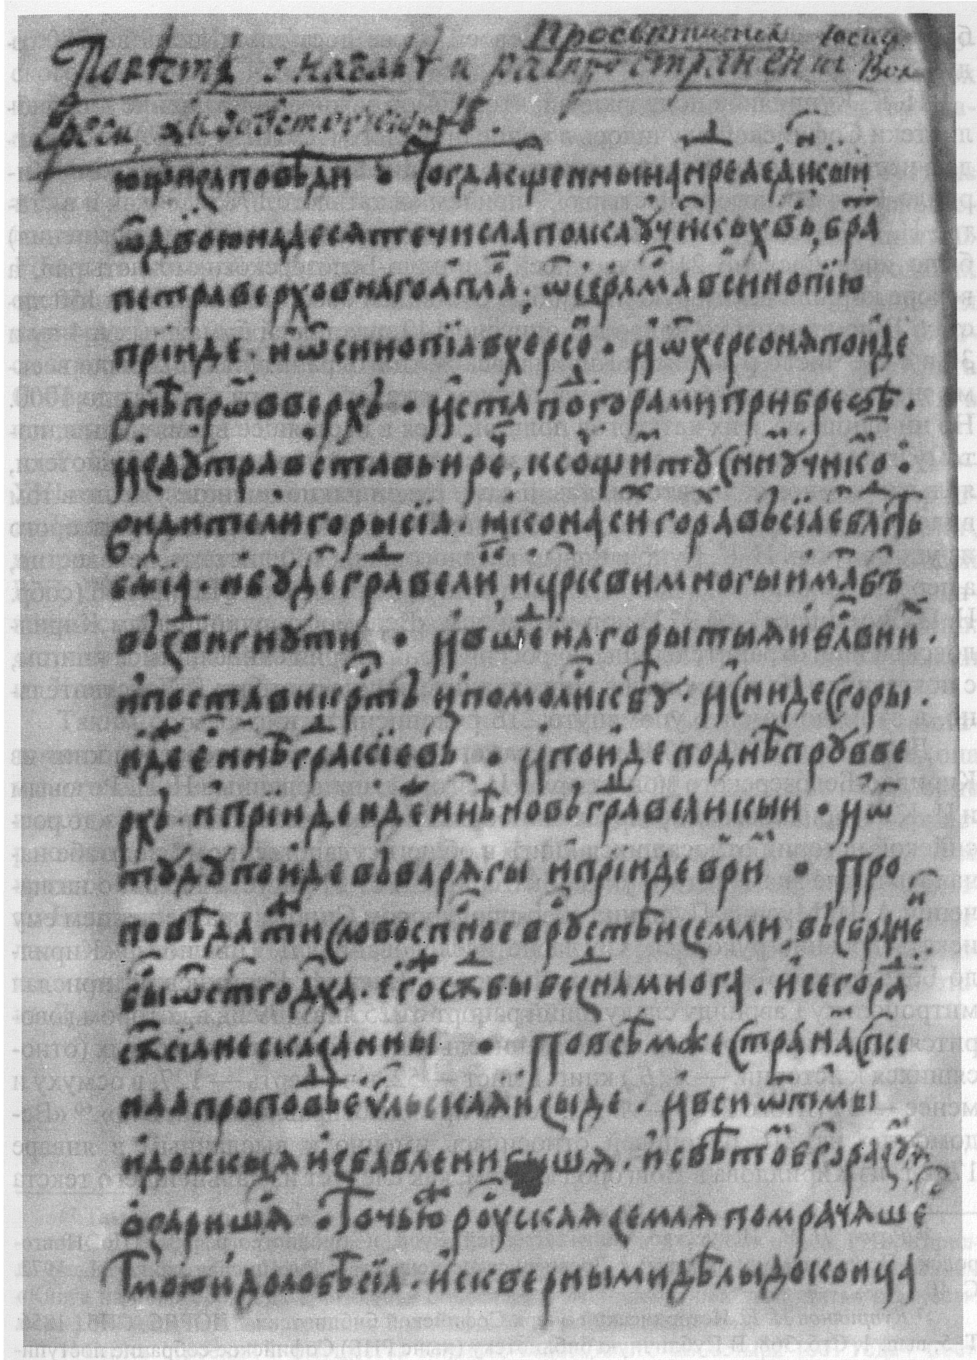 Просветителя Иосиф. Вол.
Повесть о начале и распространении
Ереси жидовствующих.
юще исповѣди · Тогда сщенныи андреѧ единыи
ѿ двоюнадесѧте числа полка ученикъ хвъ, бра
петра верховнаго апла, ѿ іерамѧ в синопїю
прїиде · и ѿ синопїѧ в херсо · и ѿ херсонѧ поиде
днѣпрѡ вверхъ · и ста по горами при брезѣ ·
и заутра вставъ и ре, к сущи ту с ни ученико ·
видители горы сїѧ · ꙗко на си гора въсїѧе блгть
бжїѧ · и буде гра вели, и цркви многы има бъ
воздвигнути · и вше на горы тыѧ и блвии ·
и постави кртъ и помоли к бу · и сниде с горы
иде же ннѣ гра кїевъ · и поиде по днѣпру вве
рхъ и прїиде иде ннѣ новъгра великыи · и ѿ
туду поиде в варѧгы и прїиде в ри · Про
повѣдати слово спное в рустѣи земли, възбране
бы ѿ стго дха · его сѫбы безна многа · и сего ра
сѫ сїѧ несказанны · По всѣм же страна спсе
наѧ проповѣ еульскаѧ изыде · и вси ѿ тмы
идолскыѧ избавлени бышѧ · и свѣто бгоразуѧ
озаришѧ · Точью роускаѧ землѧ помрачаше
тмою идолобѣсїѧ · и сквернымидѣлы до конца